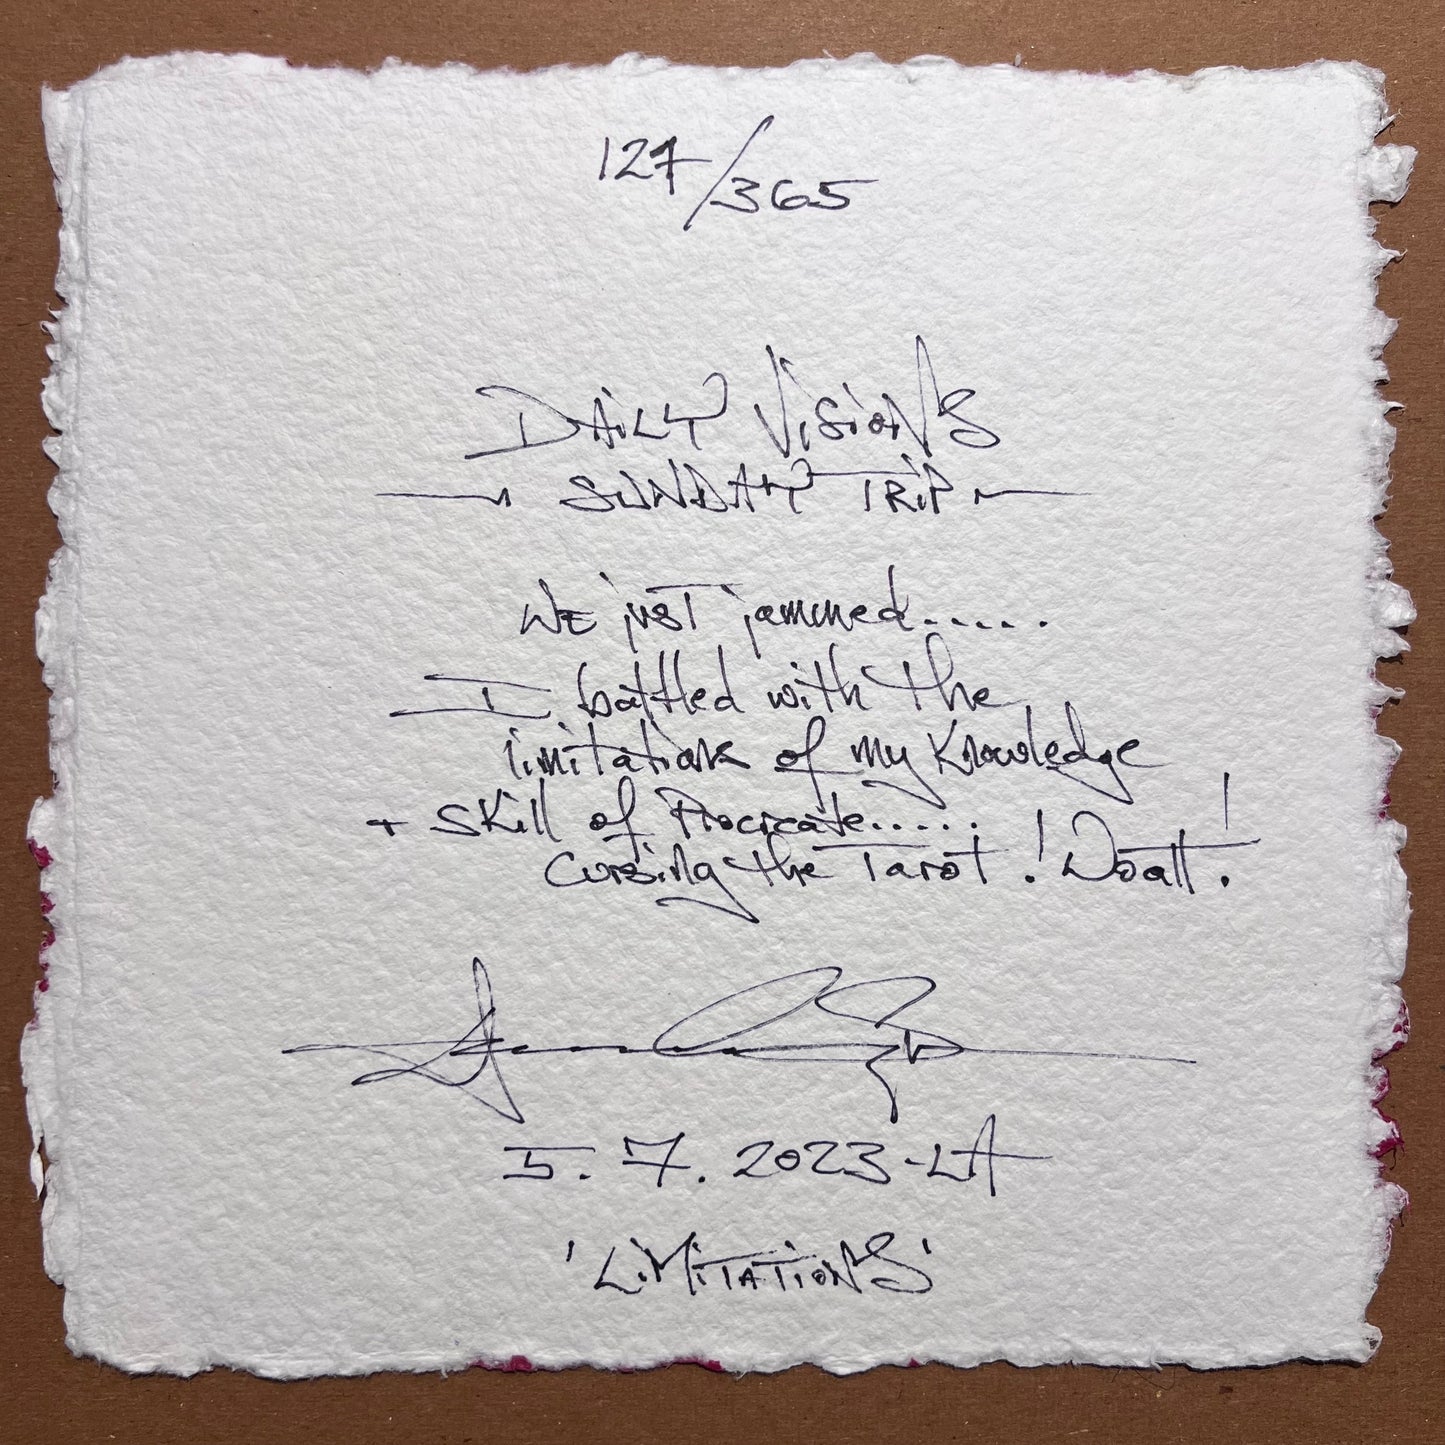 127/365
DAiLY ViSiONS
SUNDAY TRiP
WE just jammed.....
I battled with the
limitations of my Knowledge
+ SKill of Procreate.....
Cursing the Tarot! Doatt!
5.7.2023-LA
'LiMiTATiONS'